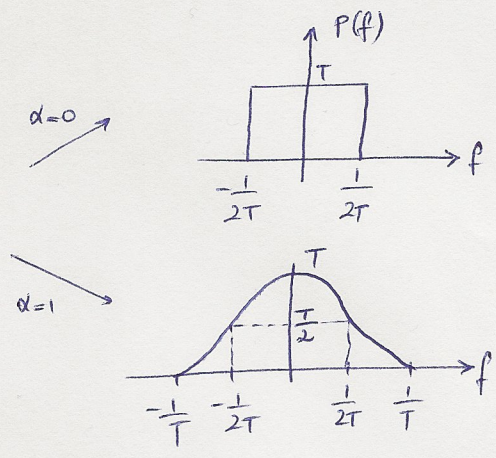 P(f)
T
α=0
f
-1/2T
1/2T
T
α=1
T/2
f
-1/T
-1/2T
1/2T
1/T